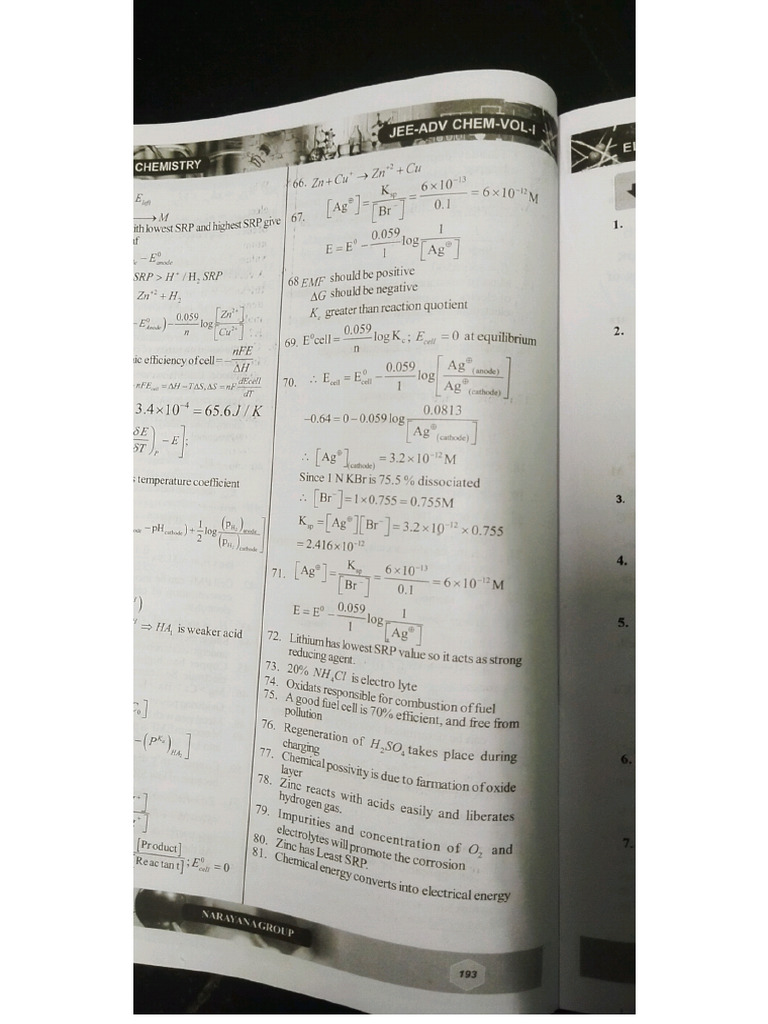 CHEMISTRY
JEE-ADV CHEM-VOL-I
E_left
→ M
ith lowest SRP and highest SRP give
- E^0_anode
SRP > H^+ / H_2 SRP
Zn^{+2} + H_2
- E^0_Anode) - 0.059/n log [Zn^{2+}]/[Cu^{2+}]
ic efficiency of cell = - nFE/ΔH
- nFE_cell = ΔH - TΔS, ΔS = nF dEcell/dT
3.4×10^{-4} = 65.6 J / K
(δE/δT)_P - E];
temperature coefficient
- pH_cathode) + 1/2 log (p_{H_2})_anode/(p_{H_2})_cathode]
⇒ HA_1 is weaker acid
- (P^{K_a})_{HA_1}]
[Product]/[Reactant]; E^0_cell = 0
66. Zn + Cu^+ → Zn^{+2} + Cu
67. [Ag^⊕] = K_sp/[Br^-] = 6×10^{-13}/0.1 = 6×10^{-12} M
E = E^0 - 0.059/1 log 1/[Ag^⊕]
68 EMF should be positive
ΔG should be negative
K_c greater than reaction quotient
69. E^0cell = 0.059/n log K_c ; E_cell = 0 at equilibrium
70. ∴ E_cell = E^0_cell - 0.059/1 log [Ag^⊕_(anode)/Ag^⊕_(cathode)]
-0.64 = 0 - 0.059 log 0.0813/[Ag^⊕_(cathode)]
∴ [Ag^⊕]_(cathode) = 3.2×10^{-12} M
Since 1 N KBr is 75.5 % dissociated
∴ [Br^-] = 1×0.755 = 0.755M
K_sp = [Ag^⊕][Br^-] = 3.2×10^{-12} × 0.755
= 2.416×10^{-12}
71. [Ag^⊕] = K_sp/[Br^-] = 6×10^{-13}/0.1 = 6×10^{-12} M
E = E^0 - 0.059/1 log 1/[Ag^⊕]
72. Lithium has lowest SRP value so it acts as strong
reducing agent.
73. 20% NH_4Cl is electro lyte
74. Oxidats responsible for combustion of fuel
75. A good fuel cell is 70% efficient, and free from
pollution
76. Regeneration of H_2SO_4 takes place during
charging
77. Chemical possivity is due to farmation of oxide
layer
78. Zinc reacts with acids easily and liberates
hydrogen gas.
79. Impurities and concentration of O_2 and
electrolytes will promote the corrosion
80. Zinc has Least SRP.
81. Chemical energy converts into electrical energy
NARAYANA GROUP
193
1.
2.
3.
4.
5.
6.
7.